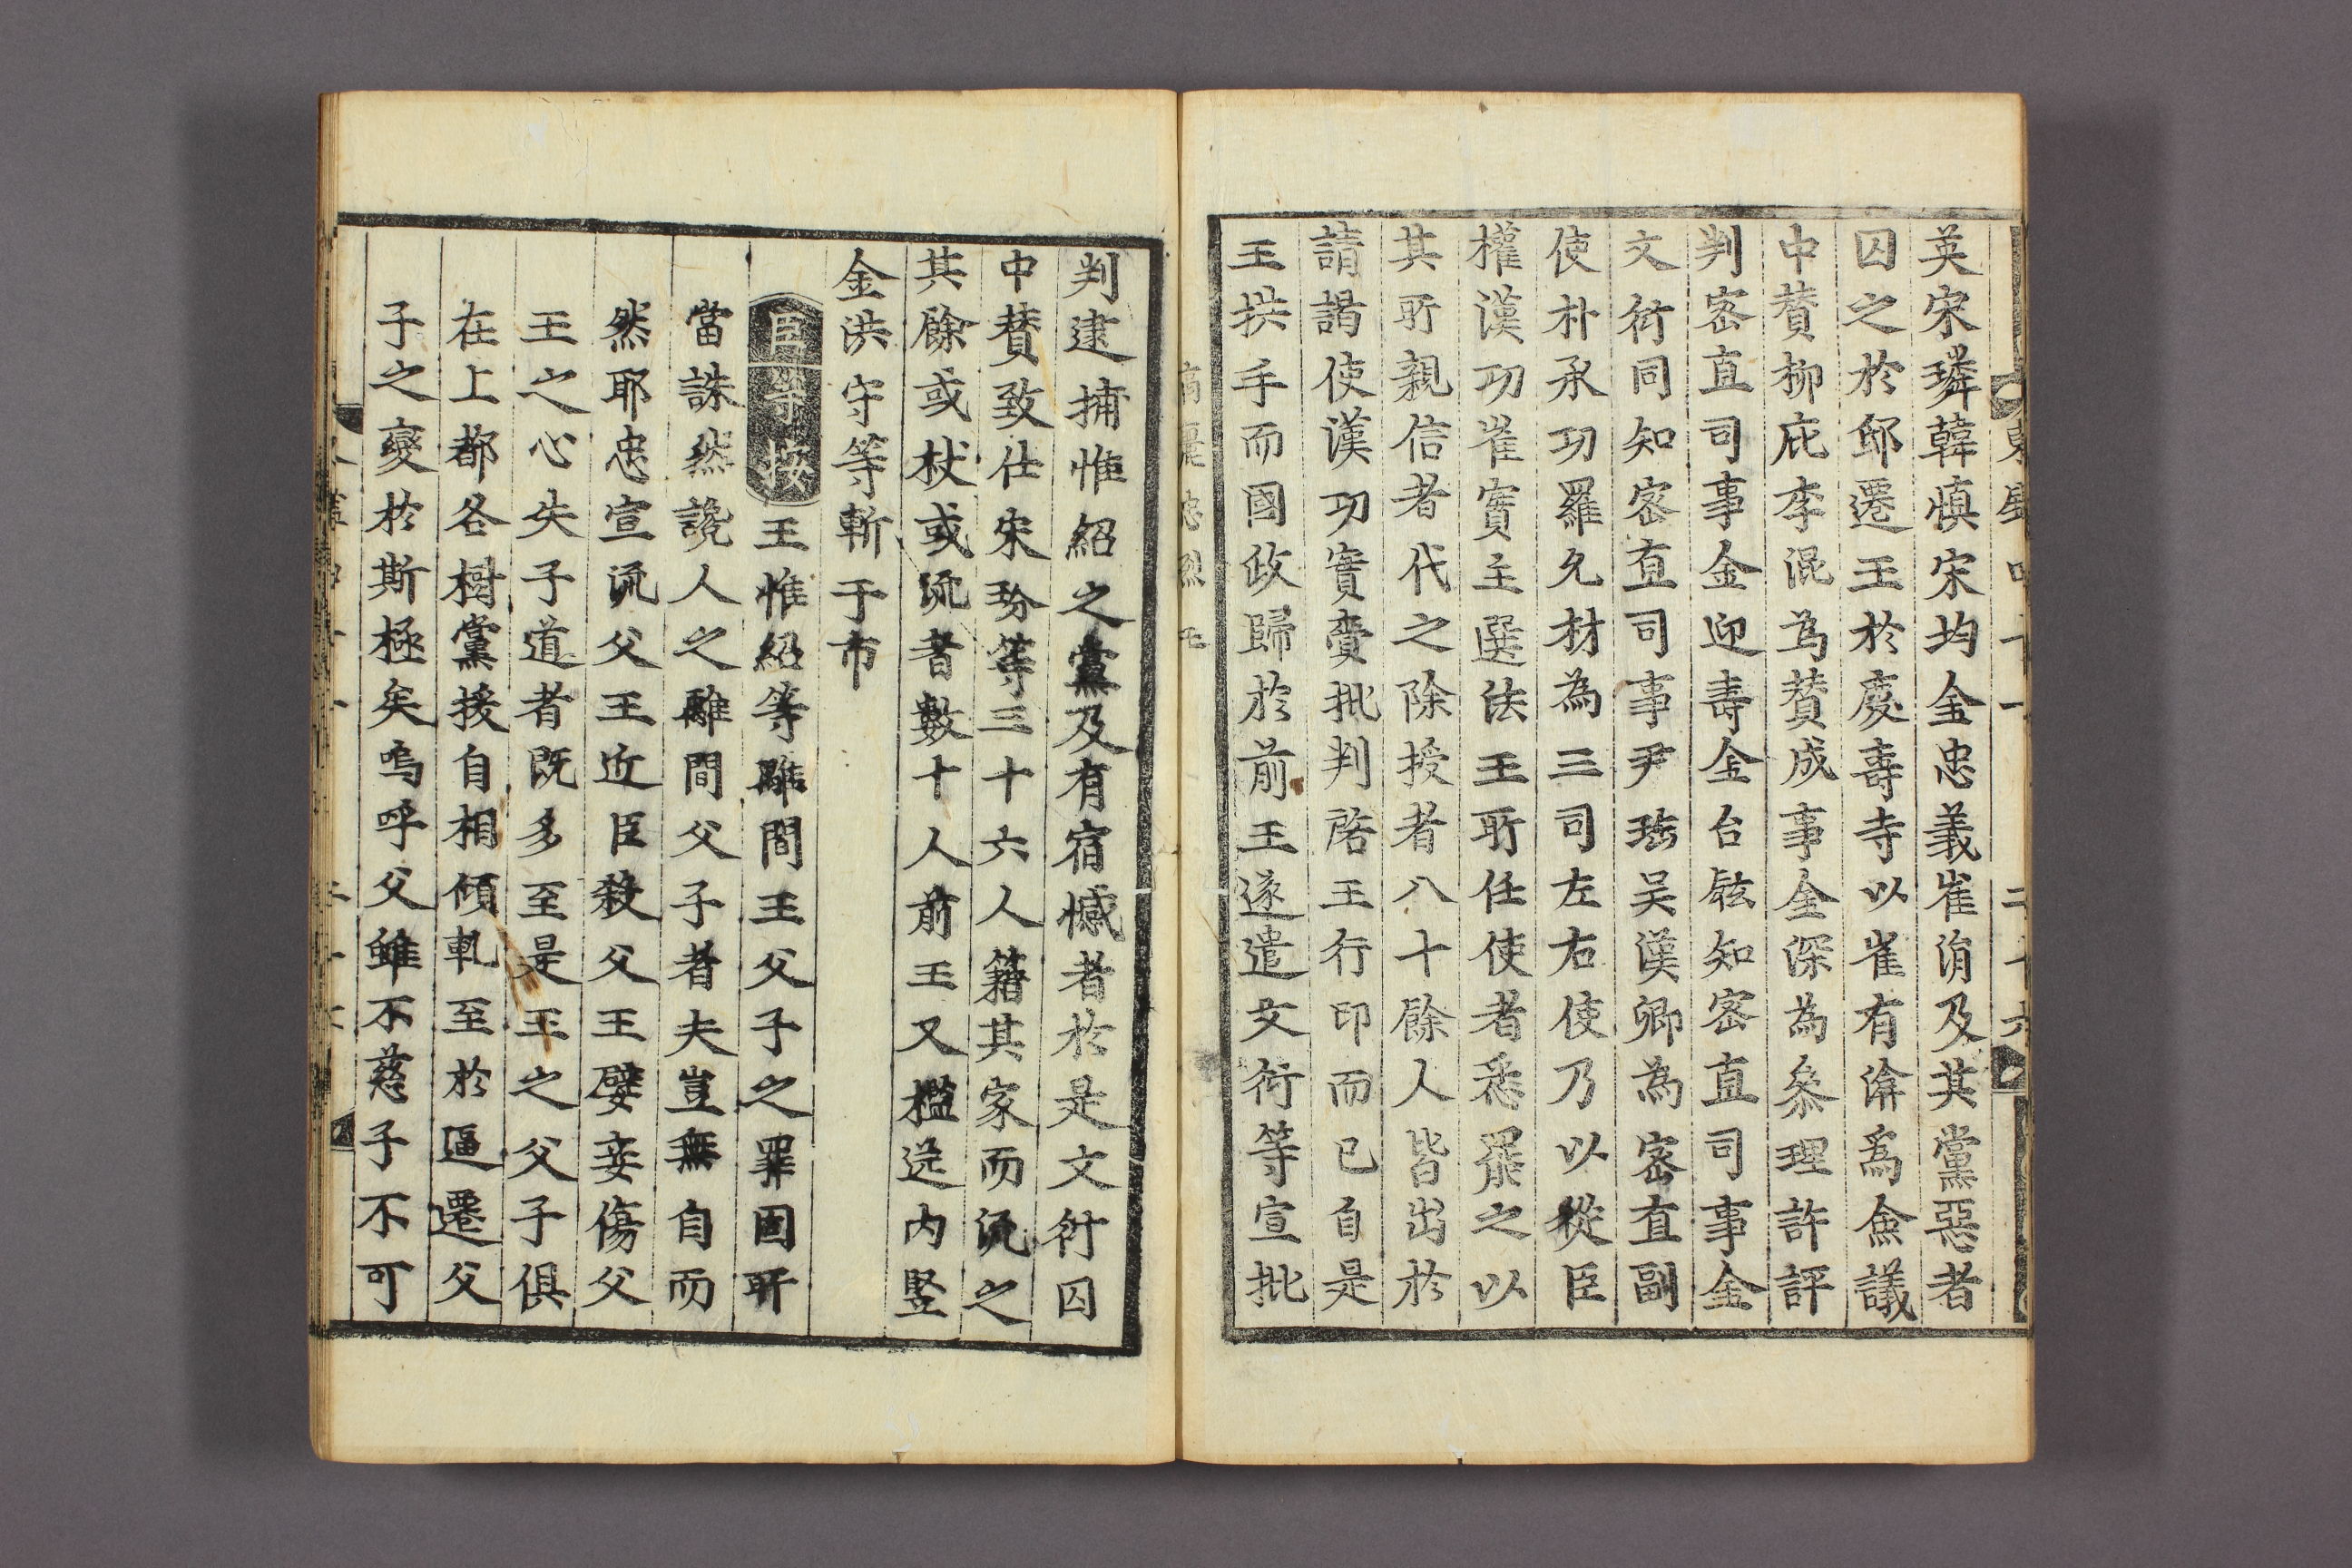 英宋璘韓愼宋均金忠義崔涓及其黨惡者
囚之於邸遷王於慶壽寺以崔有渰爲僉議
中贊柳庇李混爲贊成事金深為叅理許評
判密直司事金迎壽金台鉉知密直司事金
文衍同知密直司事尹珤吴漢卿為密直副
使朴承功羅允材為三司左右使乃以從臣
權漢功崔實主選法王所任使者悉罷之以
其所親信者代之除授者八十餘人皆出於
請謁使漢功實賫批判啓王行印而已自是
王拱手而國政歸於前王遂遣文衍等宣批
判逮捕惟紹之黨及有宿憾者於是文衍囚
中賛致仕宋玢等三十六人籍其家而流之
其餘或杖或流者數十人前王又檻送内竪
金洪守等斬于市
臣等按王惟紹等離間王父子之罪固所
當誅然讒人之離間父子者夫豈無自而
然耶忠宣流父王近臣殺父王嬖妾傷父
王之心失子道者既多至是王之父子俱
在上都各樹黨援自相傾軋至於逼遷父
子之變於斯極矣嗚呼父雖不慈子不可